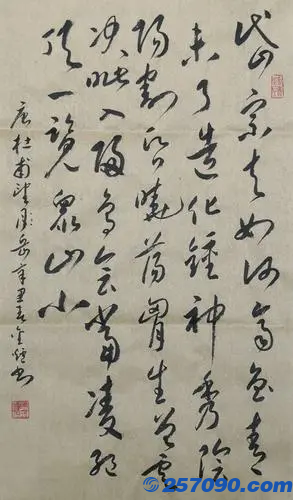 岱宗夫如何齊魯青
未了造化鍾神秀陰
陽割昏曉蕩胸生曾雲
決眦入歸鳥會當凌絕
頂一覽眾山小
唐杜甫望岳辛丑春書
257090.com